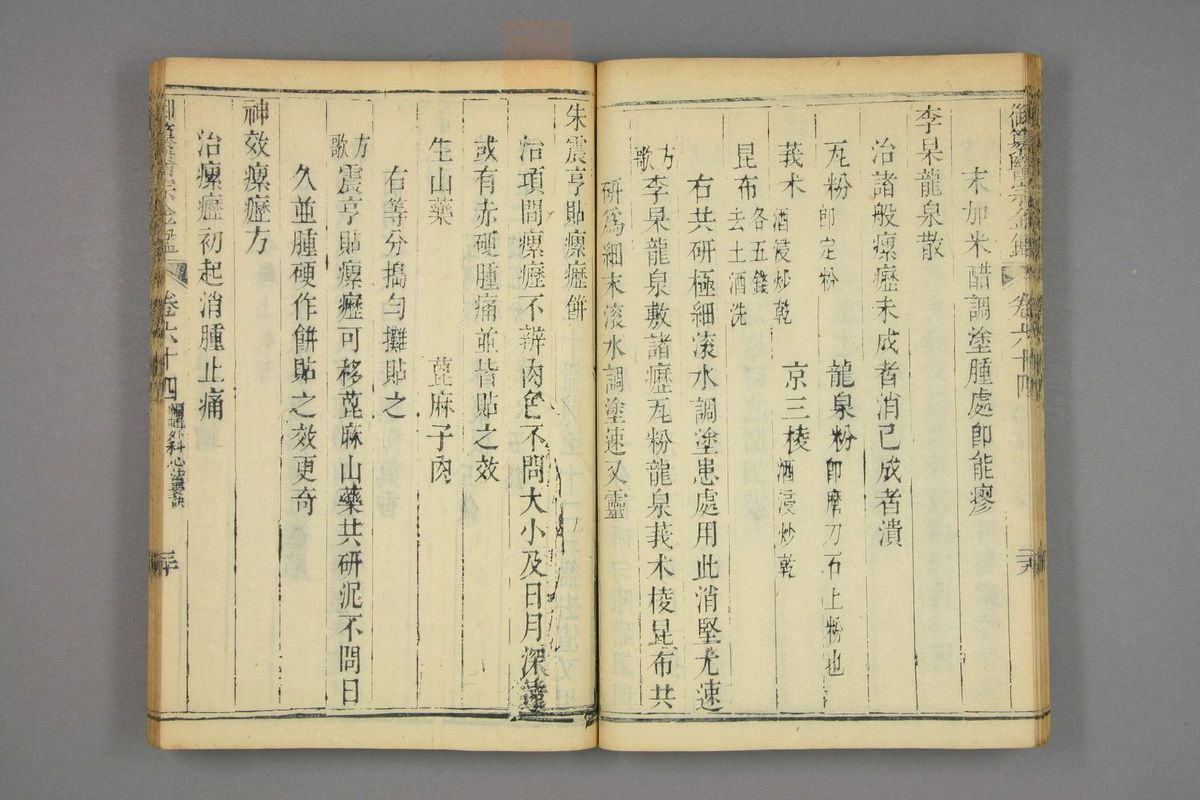 御纂醫宗金鑑 卷六十四
末加米醋調塗腫處即能瘳
李杲龍泉散
治諸般瘰癧未成者消已成者潰
瓦粉即定粉 龍泉粉即磨刀石上粉也
莪术酒浸炒乾 京三棱酒浸炒乾
昆布各五錢去土酒洗
右共研極細滾水調塗患處用此消堅尤速
方歌李杲龍泉敷諸癧瓦粉龍泉莪术棱昆布共
研爲細末滾水調塗速又靈
朱震亨貼瘰癧餅
治項間瘰癧不辨肉色不問大小及日月深遠
或有赤硬腫痛並皆貼之效
生山藥 蓖麻子肉
右等分搗勻攤貼之
方歌震亨貼瘰癧可移蓖麻山藥共研泥不問日
久並腫硬作餅貼之效更奇
神效瘰癧方
治瘰癧初起消腫止痛
御纂醫宗金鑑 卷六十四 編輯外科心法要訣 三十